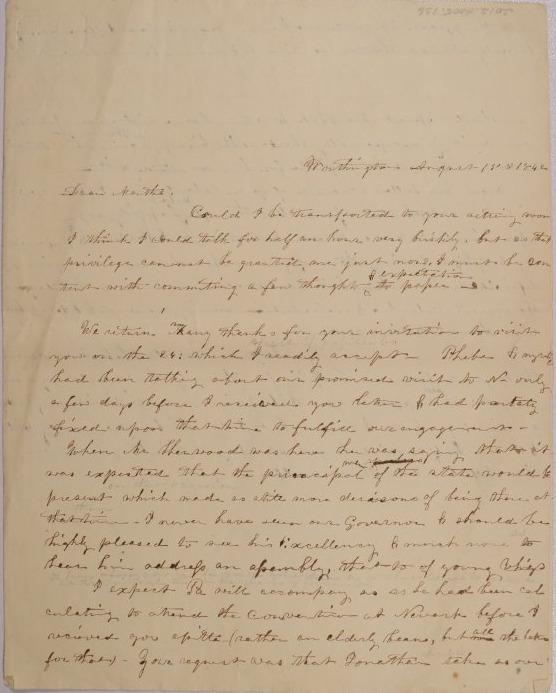 Worthington August 1st 1842
Dear Martha.
Could I be transported to your sitting room
I think I could talk for half an hour very briskly, but as that
privilege cannot be granted me just now, I must be con
tent with commiting a few thoughts & expectation to paper —
We return many thanks for your invitation to visit
you on the which I readily accept Phebe & myself
had been talking about our promised visit to N only
a few days before I received your letter & had partely
fixed upon that time to fulfill our engagements —
When Mr Sherwood was here he was saying that it
was expected that the principal men of the state would be
present which made us still more desirous of being there at
that time — I never have seen our Governor & should be
highly pleased to see his Excellency & much more to
hear him address an assembly, that to of young Whigs
I expect Pa will accompany us as he had been cal
culating to attend the Convention at Newark before I
recieved your epistle (rather an elderly beau, but the better
for that) — Your request was that Jonathan take us over